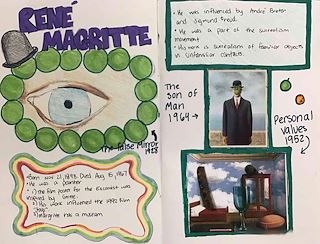 RENÉ
MAGRITTE
The False Mirror
1928
Born: Nov 21, 1898 Died Aug 15, 1967
• He was a painter
• () the film poster for the Exorcist was
inspired by
• His work influenced the 1992 film
Toys
• Magritte has a museum
• He was influenced by André Breton
and Sigmund Freud.
• He was a part of the surrealism
movement
• His work is surrealism of familiar objects
in unfamiliar contexts.
The
son of
Man
1964→
Personal
values
1952